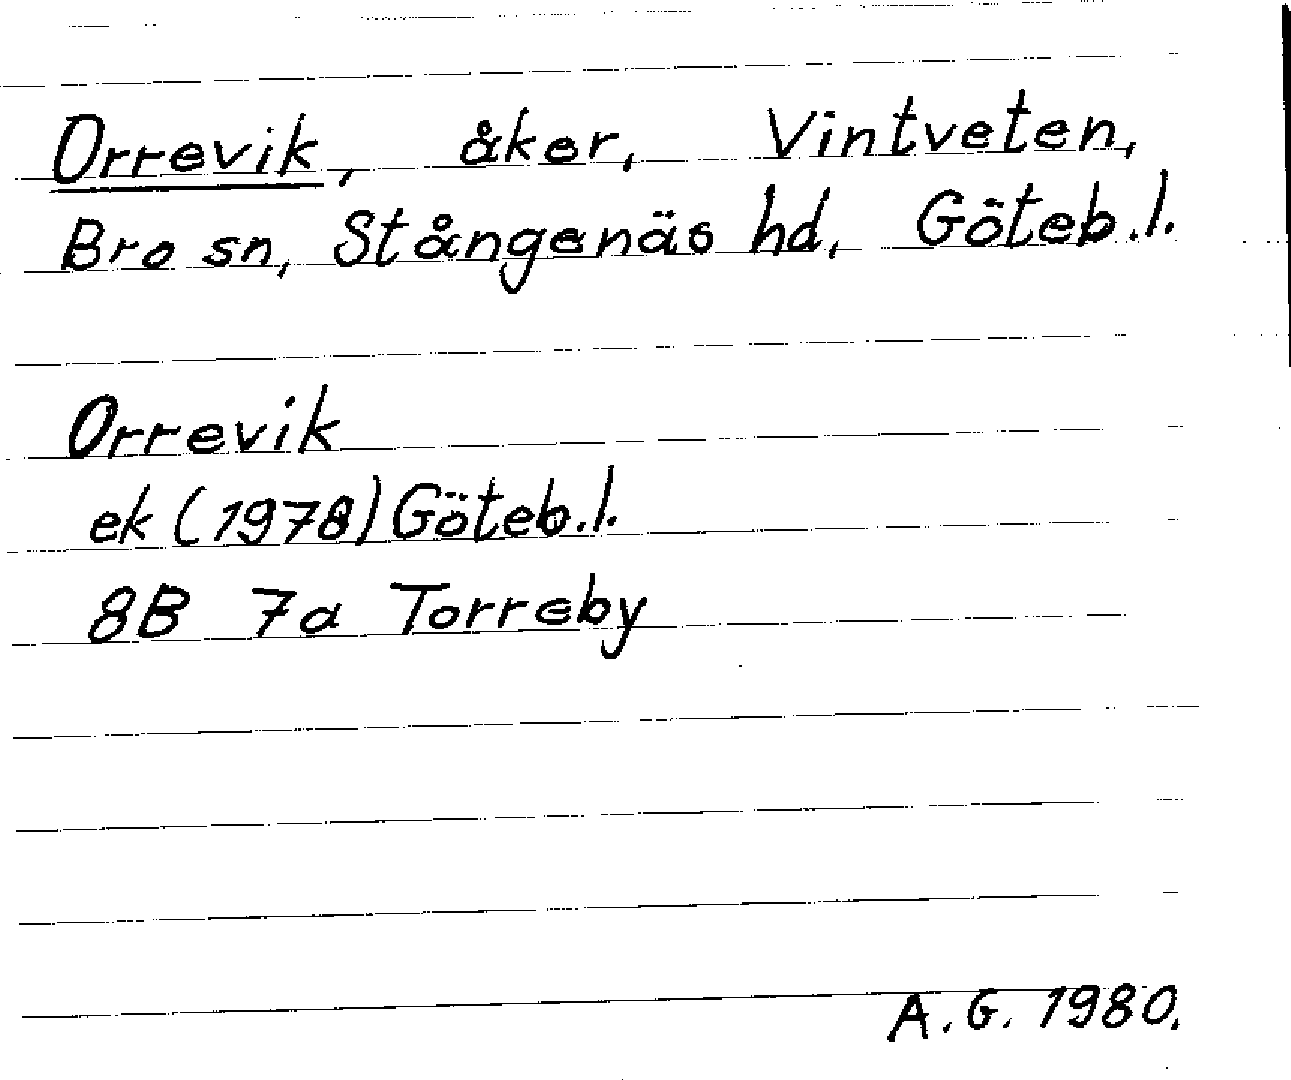 Orrevik, åker, Vintveten,
Bro sn, Stångenäs hd, Göteb.l.
Orrevik
ek (1978) Göteb.l.
8B 7a Torreby
A.G. 1980.